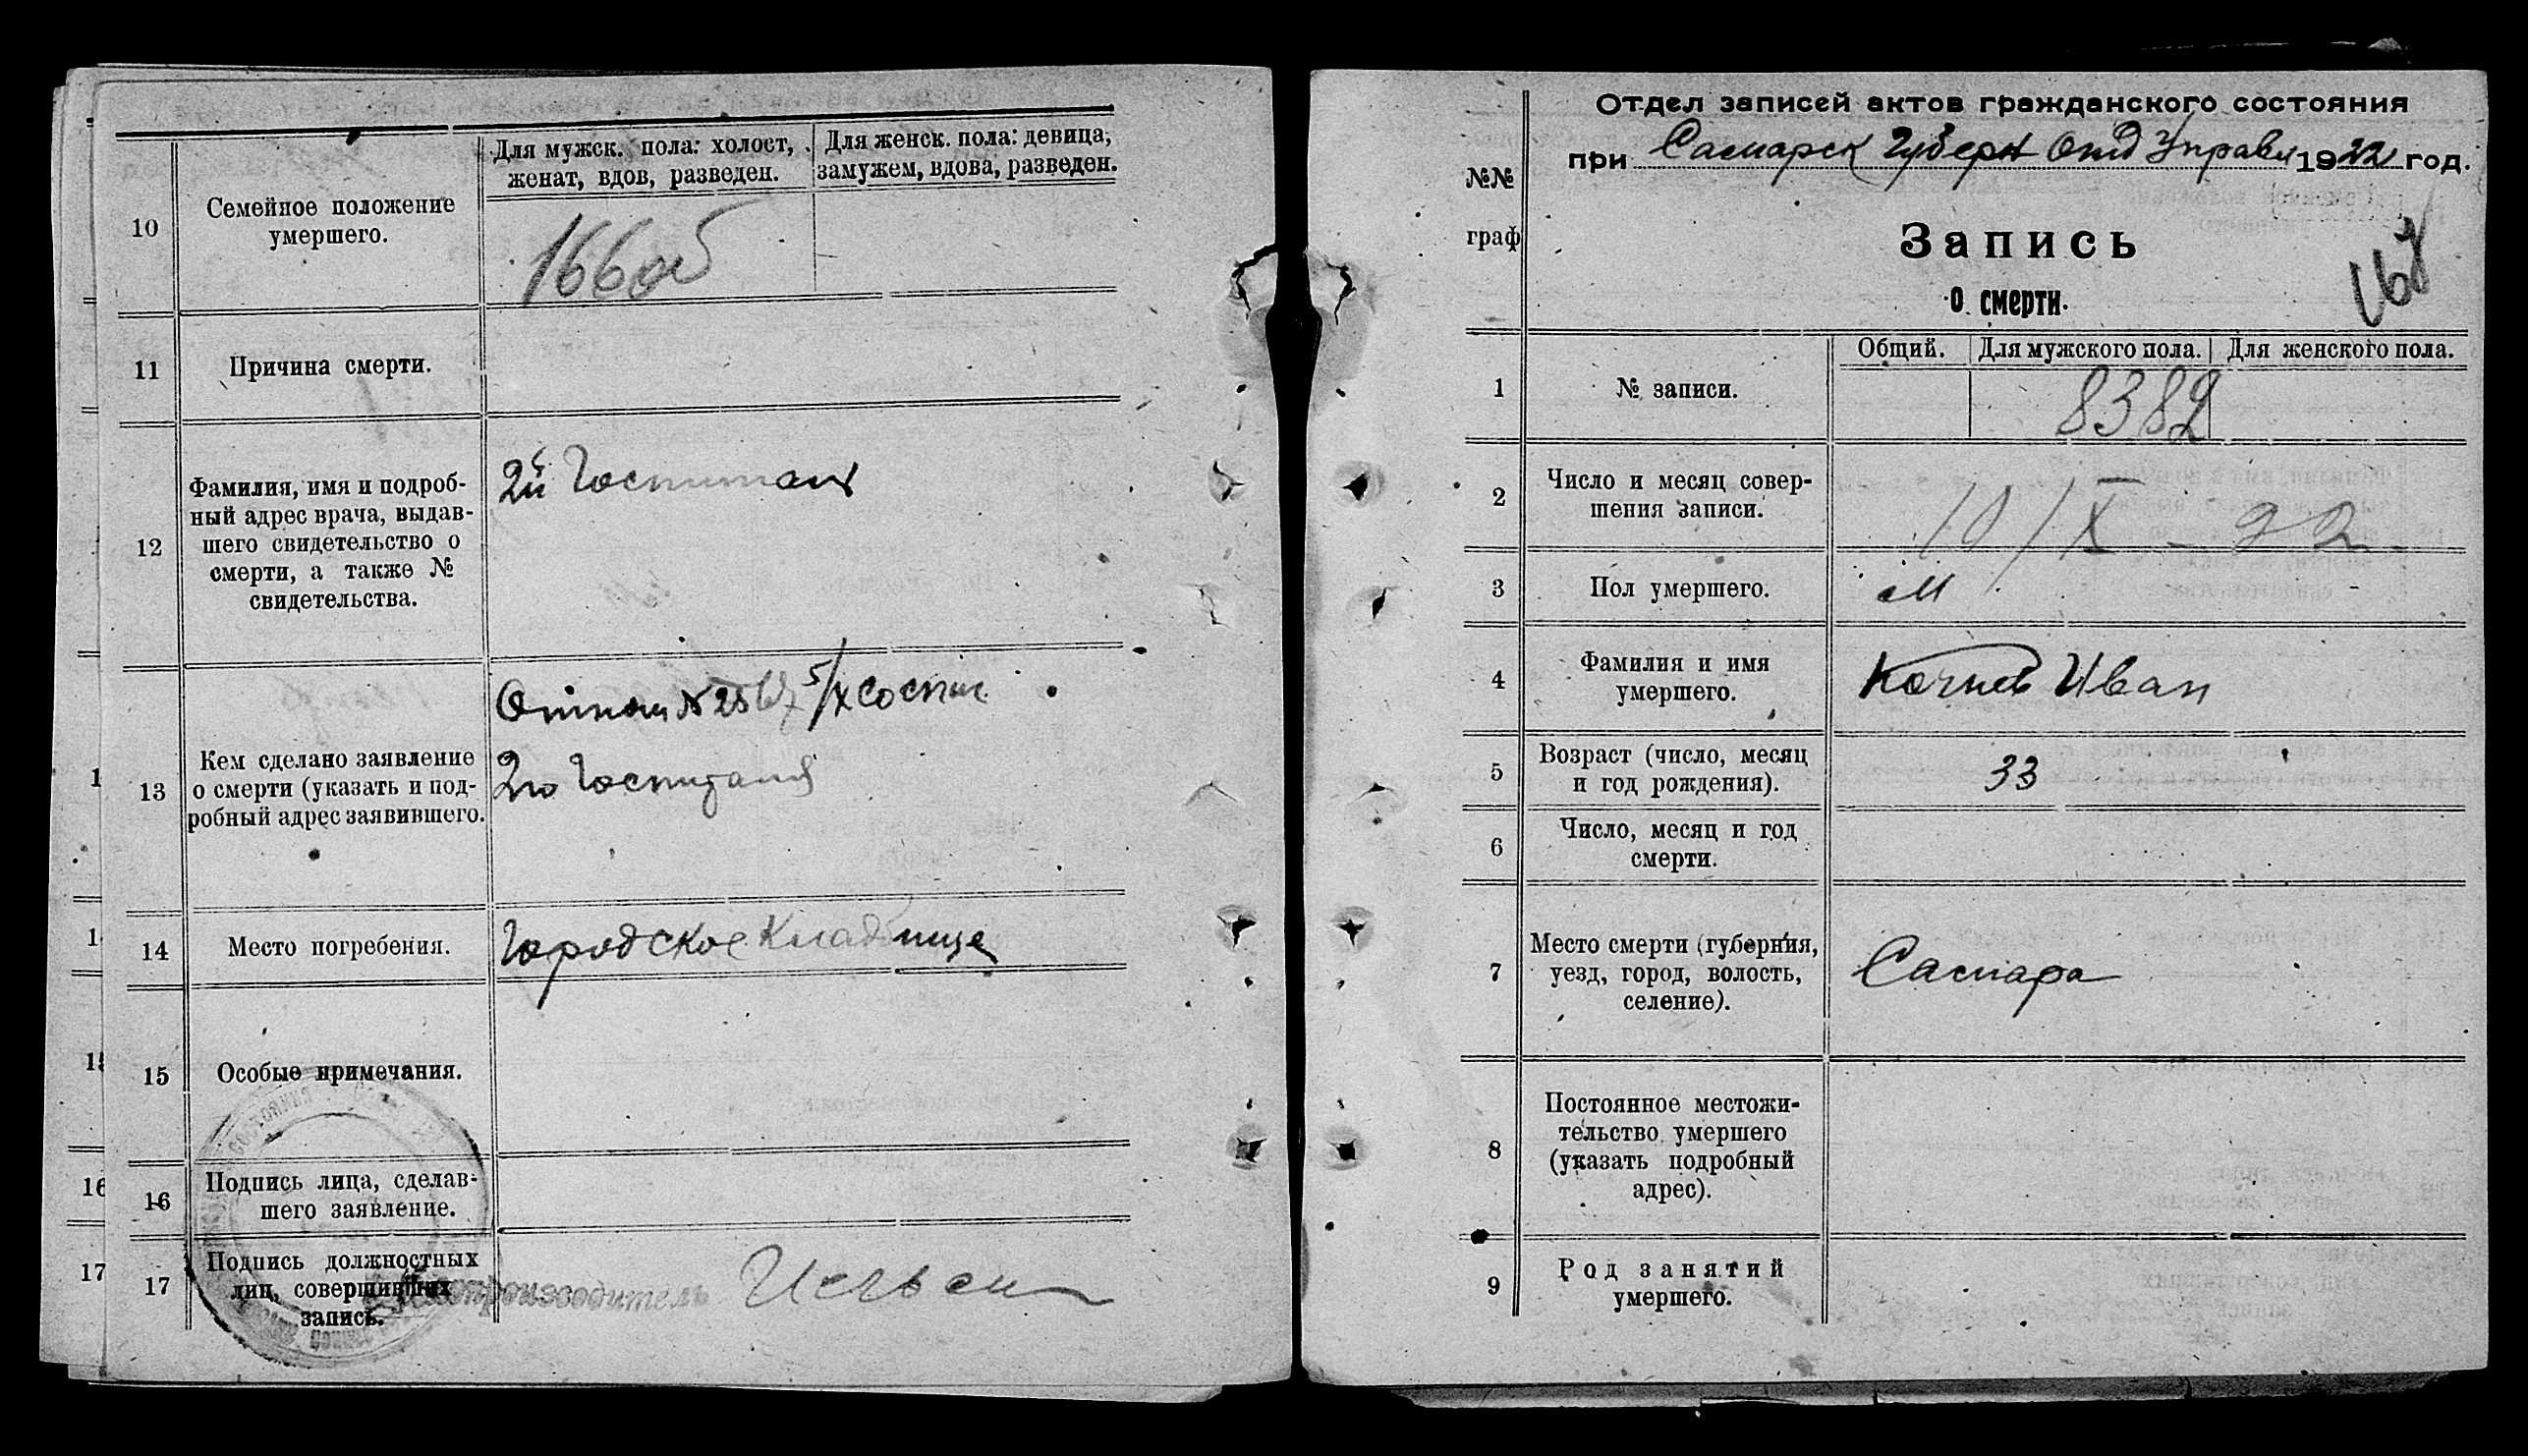 10
Семейное положение
умершего.
Для мужск. пола: холост,
женат, вдов, разведен.
Для женск. пола: девица,
замужем, вдова, разведен.
166об
11
Причина смерти.
12
Фамилия, имя и подроб-
ный адрес врача, выдав-
шего свидетельство о
смерти, а также №
свидетельства.
2й Госпиталь
13
Кем сделано заявление
о смерти (указать и под-
робный адрес заявившего.
5/X
2го Госпиталя
14
Место погребения.
Городское Кладбище
15
Особые примечания.
16
Подпись лица, сделав-
шего заявление.
17
Подпись должностных
лиц, совершивших
запись.
Делопроизводитель
1
1
15
16
17
№№
граф
Отдел записей актов гражданского состояния
при Самарск Губерн Отд Управл 1922 год.
Запись
о смерти.
1
№ записи.
Общий.
Для мужского пола.
Для женского пола.
8382
2
Число и месяц совер-
шения записи.
10/X - 22
3
Пол умершего.
М
4
Фамилия и имя
умершего.
Кочнев Иван
5
Возраст (число, месяц
и год рождения).
33
6
Число, месяц и год
смерти.
7
Место смерти (губерния,
уезд, город, волость,
селение).
Самара
8
Постоянное местожи-
тельство умершего
(указать подробный
адрес).
9
Род занятий
умершего.